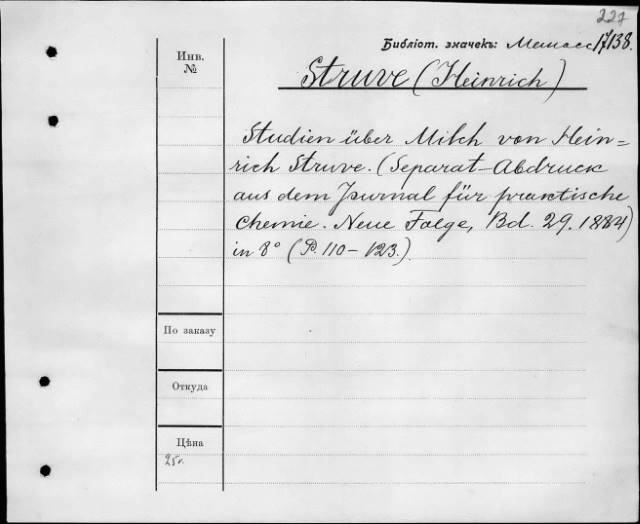 227
Библіот. значекъ: 17138.
Инв.
№
Struve (Heinrich)
Studien über Milch von Hein=
rich Struve. (Separat-Abdruck
aus dem Journal für praktische
Chemie. Neue Folge, Bd. 29. 1884)
in 8° (P. 110–123.)
По заказу
Откуда
Цѣна
25